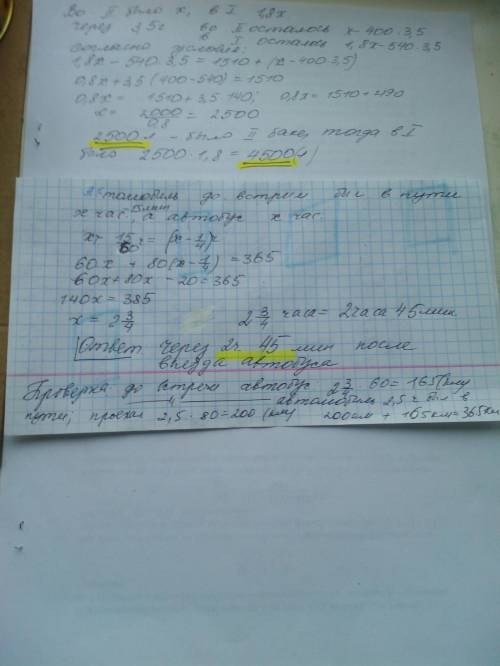 Во II было x, в I 1,8x
через 3,5 во II осталось x-400·3,5
в I осталось 1,8x-540·3,5
Согласно условия:
1,8x-540·3,5=1510+(x-400·3,5)
0,8x+3,5(400-540)=1510
0,8x= 1510+3,5·140; 0,8x=1510+490
x= 2000/0,8 = 2500
2500 л - было II баке, тогда в I
было 2500·1,8=4500(л)
до встречи был в пути
x час 15 мин, а автобус x час.
60x + 80(x-1/4)=365
60x+80x-20=365
140x=385
x=2 3/4 2 3/4 часа=2часа 45мин
Ответ через 2ч. 45 мин после
въезда автобуса
Проверка до встречи автобус 2 3/4 · 60=165(км)
автомобиль 2,5 ч был в
пути, проехал 2,5·80=200(км) 200км+165км=365км